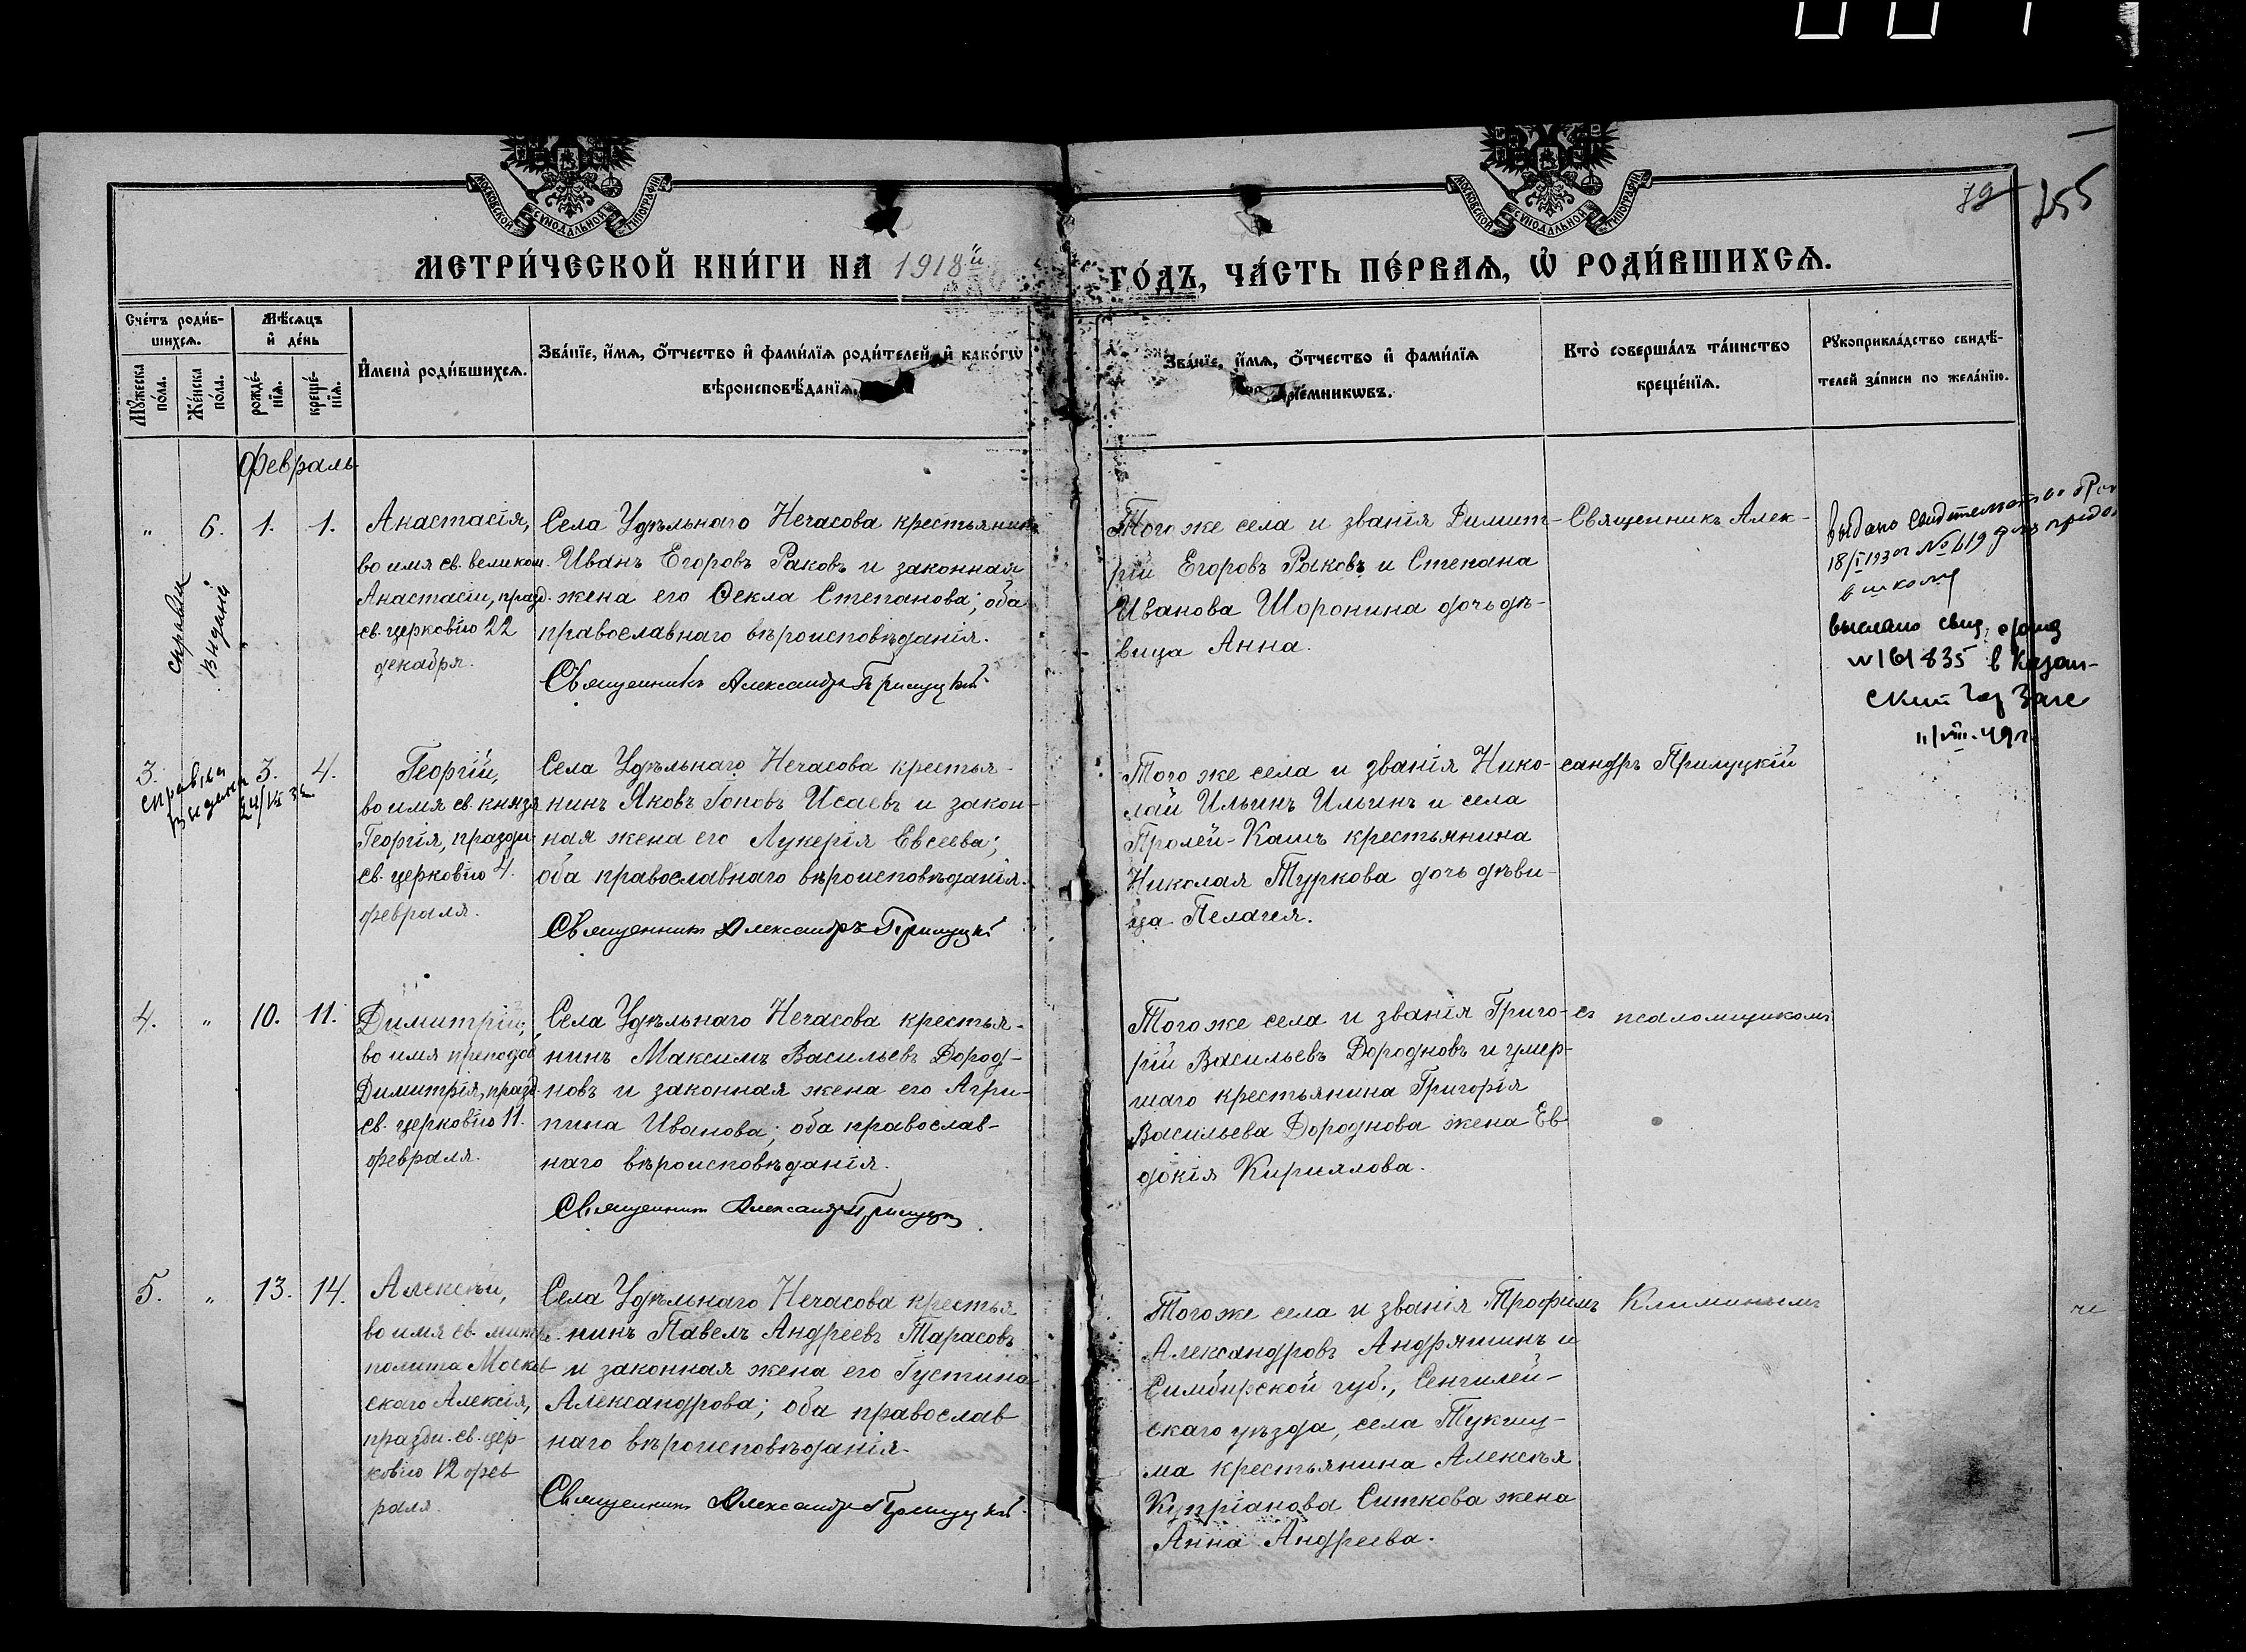 МОСКОВСКОЙ СѴНОДАЛЬНОЙ ТИПОГРАФІИ
МОСКОВСКОЙ СѴНОДАЛЬНОЙ ТИПОГРАФІИ
72
255
МЕТРИ́ЧЕСКОЙ КНИ́ГИ НА 1918й
ГО́ДЪ, ЧА́СТЬ ПЕ́РВАѦ, Ѡ҆ РОДИ́ВШИХСѦ.
Сче́тъ роди́в-
шихсѧ.
Мꙋ́жеска по́ла.
Же́нска по́ла.
Мѣ́сѧцъ
и҆ де́нь
рожде́-
нїѧ.
креще́-
нїѧ.
И҆мена̀ роди́вшихсѧ.
Зва́нїе, и҆́мѧ, ѻ҆́тчество и҆ фами́лїѧ роди́телей и҆ како́гѡ
вѣроисповѣ́данїѧ.
Зва́нїе, и҆́мѧ, ѻ҆́тчество и҆ фами́лїѧ
прїе́мникѡвъ.
Кто̀ соверша́лъ та́инство
креще́нїѧ.
Рꙋкоприкла́дство свидѣ́-
телей за́писи по жела́нїю.
Февраль
" 6. 1. 1.
Анастасія,
во имя св. великом.
Анастасіи, празд.
св. церковію 22
декабря.
Села Удѣльнаго Нечасова крестьянинъ
Иванъ Егоровъ Раковъ и законная
жена его Ѳекла Степанова; оба
православнаго вѣроисповѣданія.
Священникъ Александръ Прилуцкій
Того же села и званія Димит-
рій Егоровъ Раковъ и Степана
Иванова Шоронина дочь дѣ-
вица Анна.
Священникъ Алек-
выдано свидетельство
18/I 193 г № 419 для
в школу
выслано свид. о рожд
№ 161835 в Казан-
ский Заге
11/VIII-49г.
справка
выдана
3. 3. 4.
справка
выдана
24/
Георгій,
во имя св. князя
Георгія, праздн.
св. церковію 4.
февраля.
Села Удѣльнаго Нечасова крестья-
нинъ Яковъ Іоновъ Исаевъ и закон-
ная жена его Лукерія Евсеева;
оба православнаго вѣроисповѣданія.
Священникъ Александръ Прилуцкій
Того же села и званія Нико-
лай Ильинъ Ильинъ и села
Пролей-Кашъ крестьянина
Николая Туркова дочь дѣви-
ца Пелагея.
сандръ Прилуцкій
4. " 10. 11.
Димитрій,
во имя преподоб
Димитрія, празд.
св. церковію 11.
февраля.
Села Удѣльнаго Нечасова крестья-
нинъ Максимъ Васильевъ Дород-
новъ и законная жена его Агри-
пина Иванова; оба православ-
наго вѣроисповѣданія.
Священникъ Александръ Прилуцкій
Того же села и званія Григо-
рій Васильевъ Дородновъ и умер-
шаго крестьянина Григорія
Васильева Дороднова жена Ев-
докія Кириллова.
съ псаломщикомъ
5. " 13. 14.
Алексѣй,
во имя св. митро-
полита Москов-
скаго Алексія,
праздн. св. цер-
ковію 12 фев
раля.
Села Удѣльнаго Нечасова крестья
нинъ Павелъ Андреевъ Тарасовъ
и законная жена его Іустина
Александрова; оба православ
наго вѣроисповѣданія.
Священникъ Александръ Прилуцкій
Того же села и званія Трофимъ
Александровъ Андряшинъ и
Симбирской губ., Сенгилей-
скаго уѣзда, села Тукшу-
ма крестьянина Алексѣя
Купріанова Ситкова жена
Анна Андреева.
Климинымъ